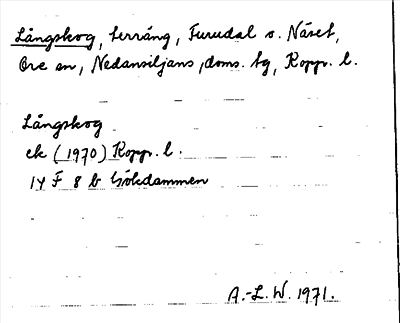 Långskog, terräng, Furudal o. Näset,
Ore sn, Nedansiljans doms. tg, Kopp. l.
Långskog
ek (1970) Kopp. l.
14 F 8 b Gökdammen
A.-L. W. 1971.